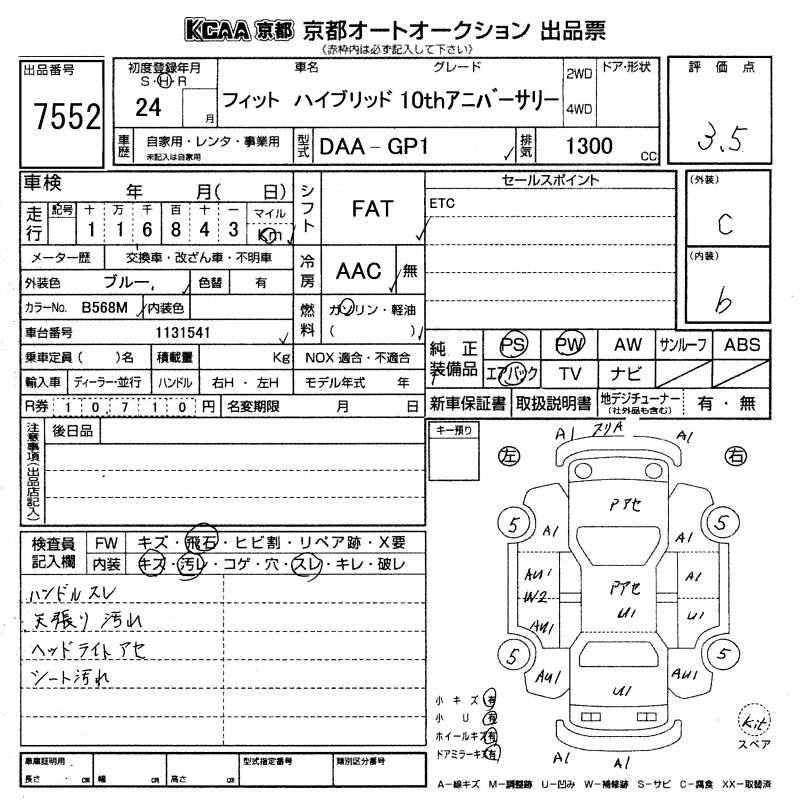 KCAA 京都 京都オートオークション 出品票
《赤枠内は必ず記入して下さい》
出品番号
7552
初度登録年月
S・H・R
24 月
車名 グレード
フィット ハイブリッド 10thアニバーサリー
2WD
4WD
ドア・形状
評価点
3.5
車歴
自家用・レンタ・事業用
未記入は自家用
型式
DAA－GP1
排気
1300 CC
車検 年 月( 日)
走行
記号 十 万 千 百 十 一 マイル
1 1 6 8 4 3 Km
メーター歴 交換車・改ざん車・不明車
外装色 ブルー 色替 有
カラーNo. B568M 内装色
車台番号 1131541
乗車定員 ( )名 積載量 Kg
輸入車 ディーラー・並行 ハンドル 右H・左H
R券 10,710円 名変期限 月 日
シフト FAT
冷房 AAC 無
燃料 ガソリン・軽油
( )
NOX 適合・不適合
モデル年式 年
セールスポイント
ETC
(外装)
C
(内装)
b
純正装備品
PS PW AW サンルーフ ABS
エアバック TV ナビ
新車保証書 取扱説明書 地デジチューナー
(社外品も含む) 有・無
注意事項(出品店記入)
後日品
キー預り
検査員記入欄
FW キズ・飛石・ヒビ割・リペア跡・X要
内装 キズ・汚レ・コゲ・穴・スレ・キレ・破レ
ハンドルスレ
天張り汚れ
ヘッドライトアセ
シート汚れ
左 右
A1 スリA A1
Pアセ
5 5
A1 A1
AU1 A1
W2 Pアセ
U1 U1
AU1
5 5
AU1 U1 AU1
A1 A1
小キズ 有
小U 有
ホイールキズ 有
ドアミラーキズ 有
Kit
スペア
車庫証明用
長さ cm 幅 cm 高さ cm
型式指定番号
類別区分番号
A－線キズ M－調整跡 U－凹み W－補修跡 S－サビ C－腐食 XX－取替済